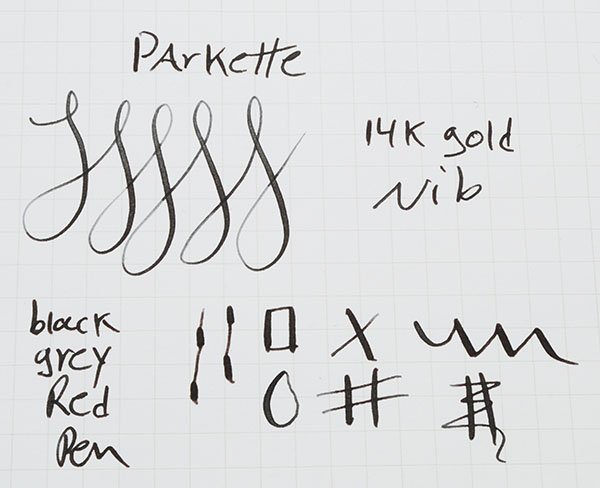 Parkette
14K gold
Nib
black
grey
Red
Pen
#